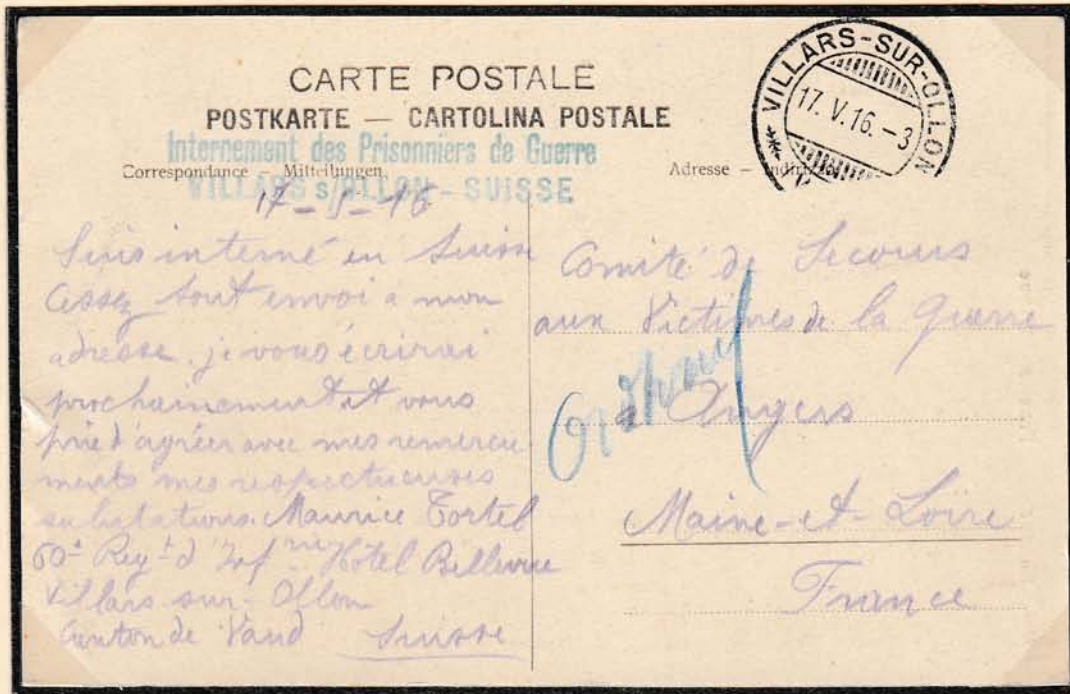 CARTE POSTALE
POSTKARTE — CARTOLINA POSTALE
Internement des Prisonniers de Guerre
VILLARS s/OLLON - SUISSE
Correspondance – Mitteilungen.
Adresse –
VILLARS-SUR-OLLON
17. V. 16. – 3
17 – 5 – 16
Suis interné en Suisse
Cessez tout envoi a mon
adresse. je vous écrirai
prochainement et vous
prie d'agréer avec mes remercie
ments mes respectueuses
salutations. Maurice Tortel
60e Regt d'Infrie Hôtel Bellevue
Villars sur-Ollon
Canton de Vaud Suisse
Comité de Secours
aux Victimes de la Guerre
à Angers
Maine-et-Loire
France